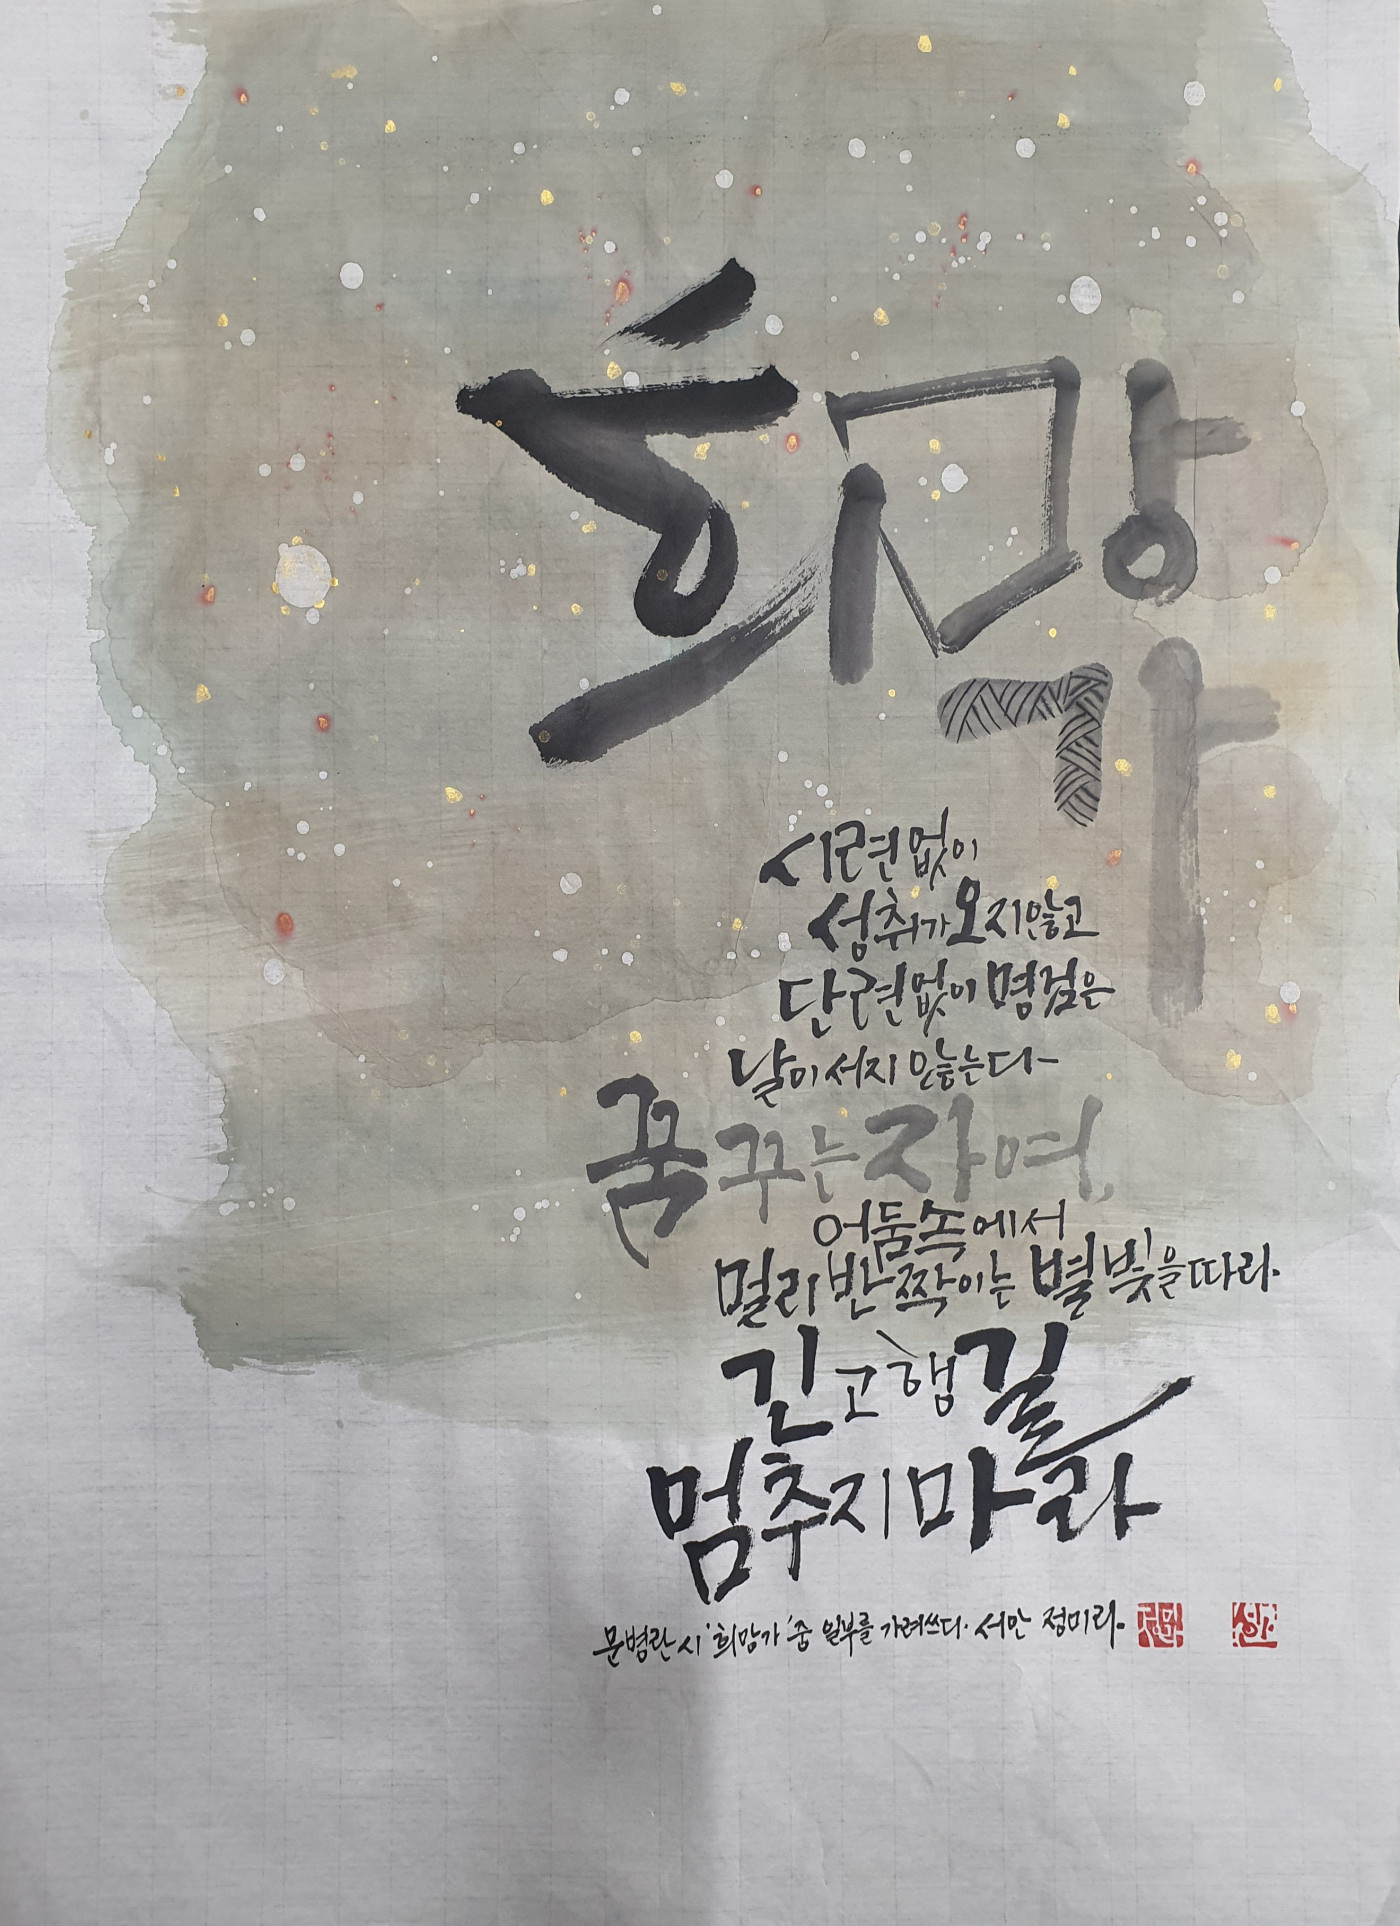 희망가
시련없이
성취가 오지않고
단련없이 명검은
날이 서지 않는다
꿈꾸는 자여,
어둠속에서
멀리 반짝이는 별빛을 따라.
긴 고행길
멈추지 마라
문병란 시 '희망가' 중 일부를 가려쓰다. 서안 정미라.